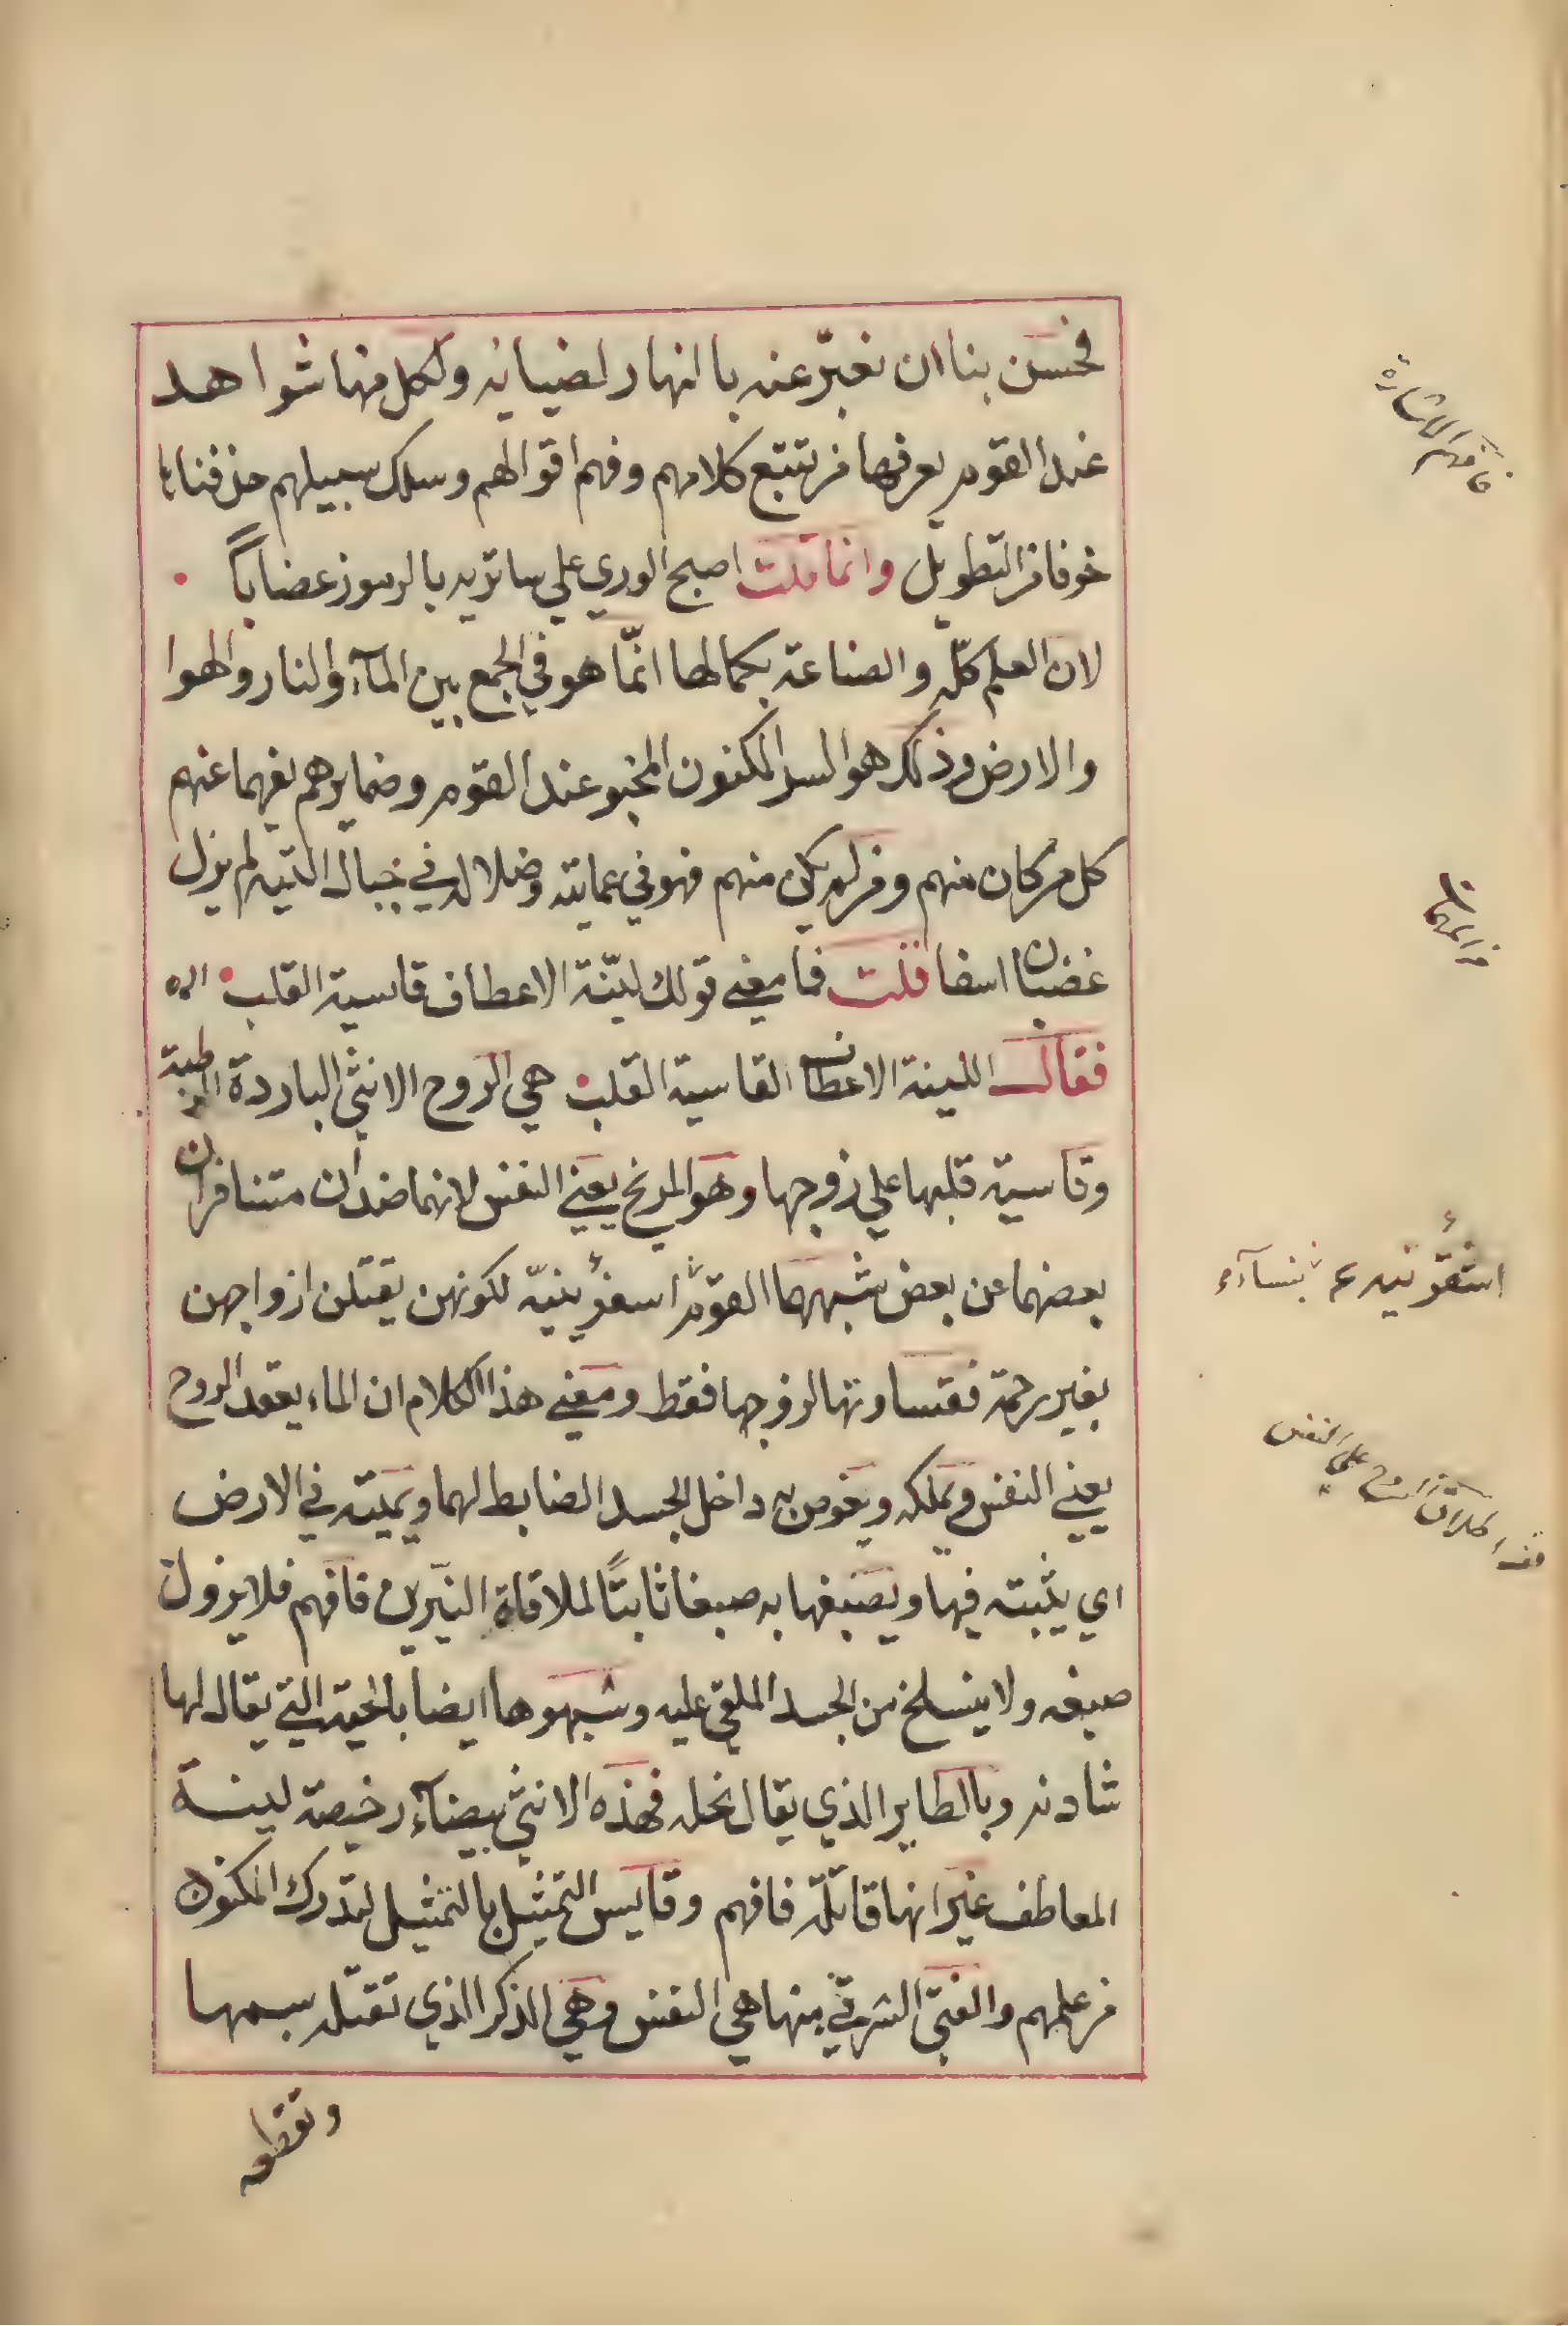 فحسن بنا ان نعبّر عنه بالنهار لضيائه ولكل منها شواهد
عند القوم يعرفها من تتبع كلامهم وفهم اقوالهم وسلك سبيلهم حذفناها
خوفا من التطويل وانما قلت اصبح الوري علي ساتريه بالرموز غضاباً
لان العلم كلّه والصناعة بكمالها انّما هو في الجمع بين المآء والنار والهوا
والارض وذلك هو السر المكنون المخبو عند القوم وضمايرهم يفهما عنهم
كل من كان منهم ومن لم يكن منهم فهو في عمايته وضلاله في جبال التيه لم يزل
غضبان اسفا قلت فما معني قولك ليّنة الاعطاف قاسية القلب
فقال اللينة الاعطاف القاسية القلب هي الروح الانثي الباردة الرطبة
وقاسية قلبها علي زوجها وهو المريخ يعني النفس لانهما ضدان متنافران
بعضهما عن بعض شبهها القوم اسفؤنيّه لكونهن يقتلن ازواجهن
بغير رحمة فقساوتها لزوجها فقط ومعني هذا الكلام ان الماء يعقد الروح
يعني النفس ويملكه ويغوص به داخل الجسد الضابط لهما ويميته في الارض
اي يثبته فيها ويصبغها به صبغا ثابتًا لملاقاة النيّرين فافهم فلا يزول
صبغه ولا ينسلخ من الجسد الملقي عليه وشبهوها ايضا بالحية التي يقال لها
شاونه وبالطاير الذي يقال نحله فهذه الانثي بيضآء رخيصة لينة
المعاطف غير انها قاتلة فافهم وقايس التمثيل بالتمثيل لتدرك المكنون
من علمهم والفتي الشرقي منها هي النفس وهي الذكر الذي تقتله بسمها
وتقطعه
فافهم الاشارة